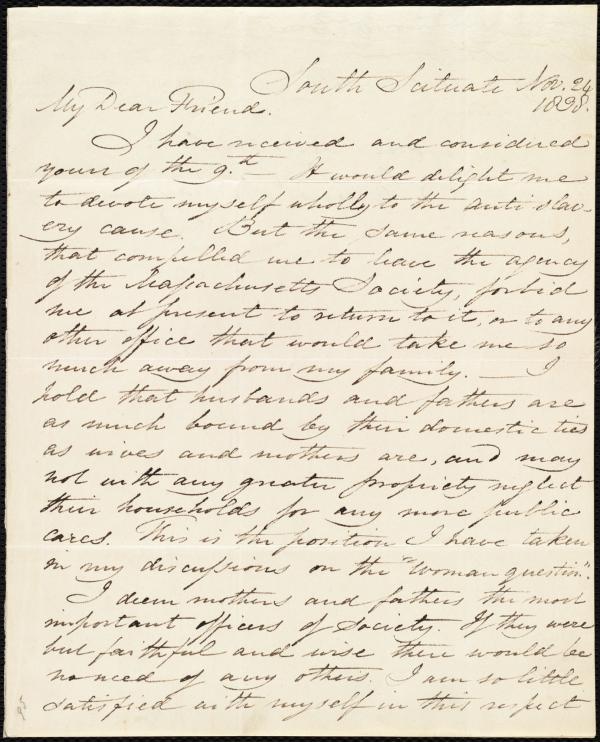 South Scituate Nov. 24
1838.
My Dear Friend.
I have received and considered
yours of the 9.th — It would delight me
to devote myself wholly to the anti slav-
ery cause. But the same reasons,
that compelled me to leave the agency
of the Massachusetts Society, forbid
me at present to return to it, or to any
other office that would take me so
much away from my family. — I
hold that husbands and fathers are
as much bound by their domestic ties
as wives and mothers are, and may
not with any greater propriety neglect
their households for any more public
cares. This is the position I have taken
in my discussions on the "Woman question".
I deem mothers and fathers the most
important officers of Society. If they were
but faithful and wise there would be
no need of any others. I am so little
satisfied with myself in this respect